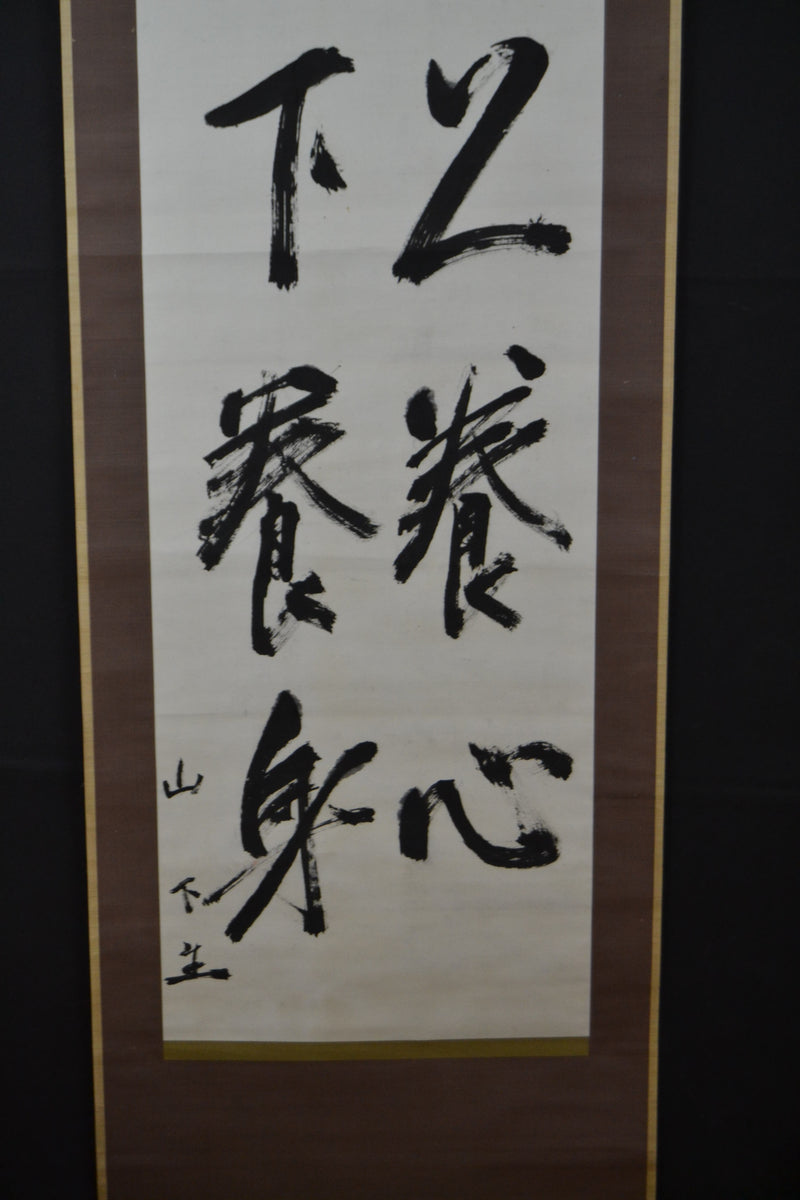 之養心
下養身
山下生